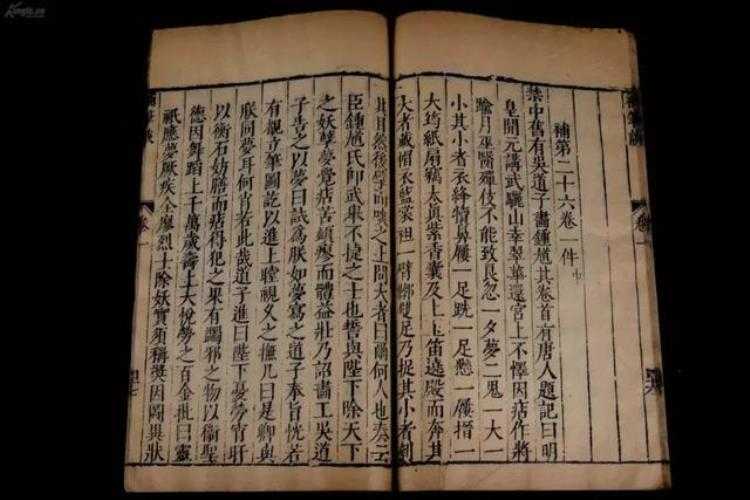 補第二十六卷一件
禁中舊有吳道子畫鍾馗其卷首有唐人題記曰明
皇開元講武驪山幸翠華還宮上不懌因痁作將
踰月巫醫殫伎不能致良忽一夕夢二鬼一大一
小其小者衣絳犢鼻屨一足跣一足懸一屨搢一
大筠紙扇竊太真紫香囊及上玉笛遶殿而奔其
大者戴帽衣藍裳袒一臂鞹雙足乃捉其小者刳
其目然後擘而啖之上問大者曰爾何人也奏云
臣鍾馗氏即武舉不捷之士也誓與陛下除天下
之妖孽夢覺痁苦頓瘳而體益壯乃詔畫工吳道
子告之以夢曰試為朕如夢寫之道子奉旨恍若
有覩立筆圖訖以進上瞠視久之撫几曰是卿與
朕同夢耳何肖若此哉道子進曰陛下憂勞宵旰
以衡石妨膳而痁得犯之果有蠲邪之物以衞聖
德因舞蹈上千萬歲壽上大悅勞之百金批曰靈
祇應夢厥疾全瘳烈士除妖實須稱奬因圖異狀